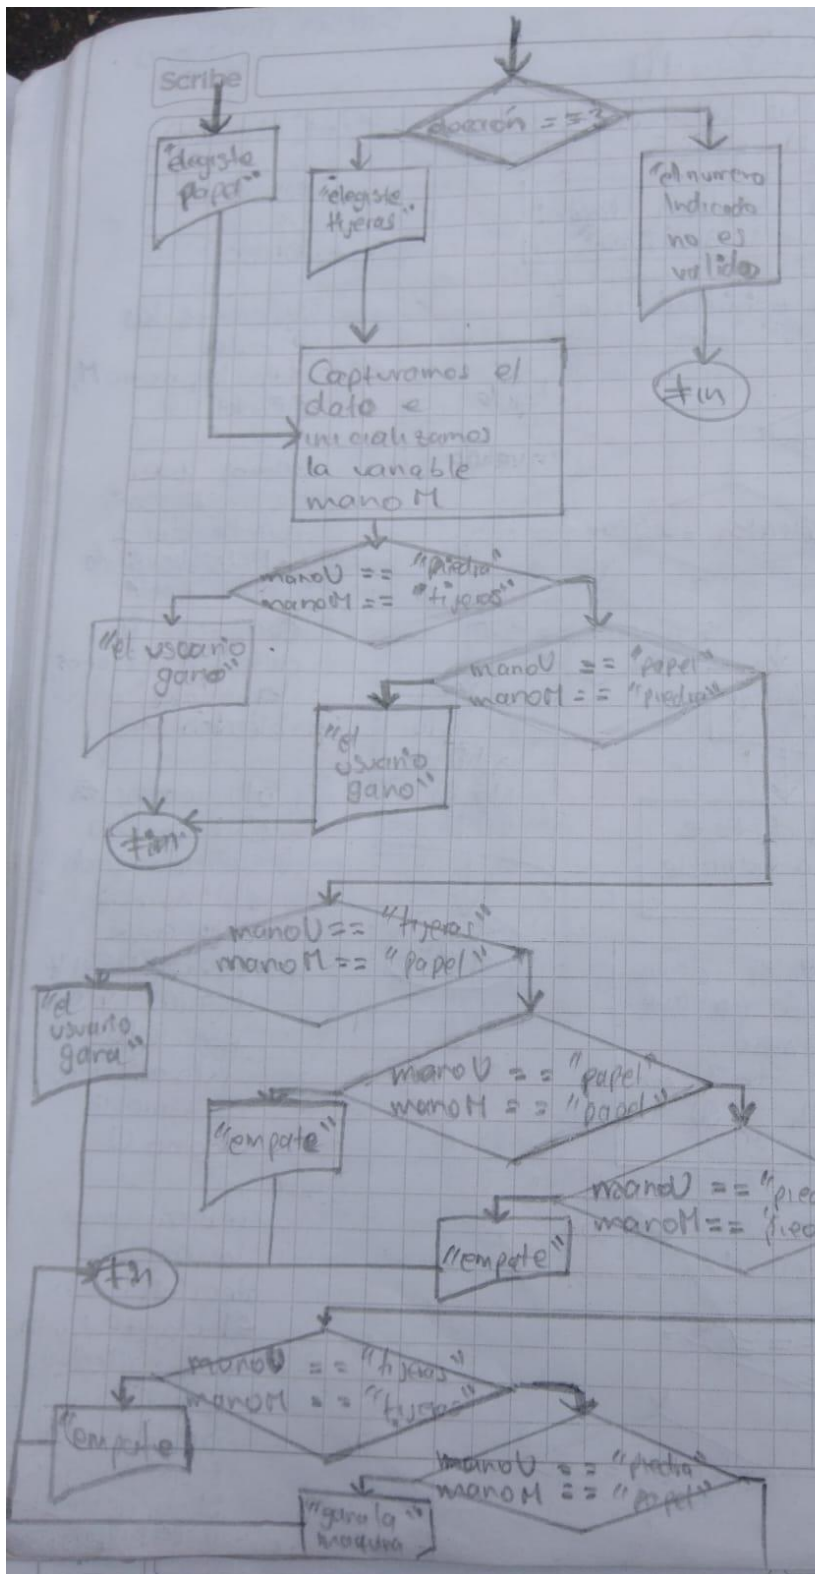 Scribe
elección == 3
"elegiste
papel"
"elegiste
tijeras"
"el numero
Indicado
no es
valido
Capturamos el
dato e
inicializamos
la variable
mano M
fin
manoU == "piedra"
manoM == "tijeras"
"el usuario
gano"
manoU == "papel"
manoM == "piedra"
"el
usuario
gano"
fin
manoU == "tijeras"
manoM == "papel"
"el
usuario
gana"
manoU == "papel"
manoM == "papel"
"empate"
manoU == "pied
manoM == "pied
"empate"
fin
manoU == "tijeras"
manoM == "tijeras"
"empate
manoU == "piedra"
manoM == "papel"
"gana la"
maquina